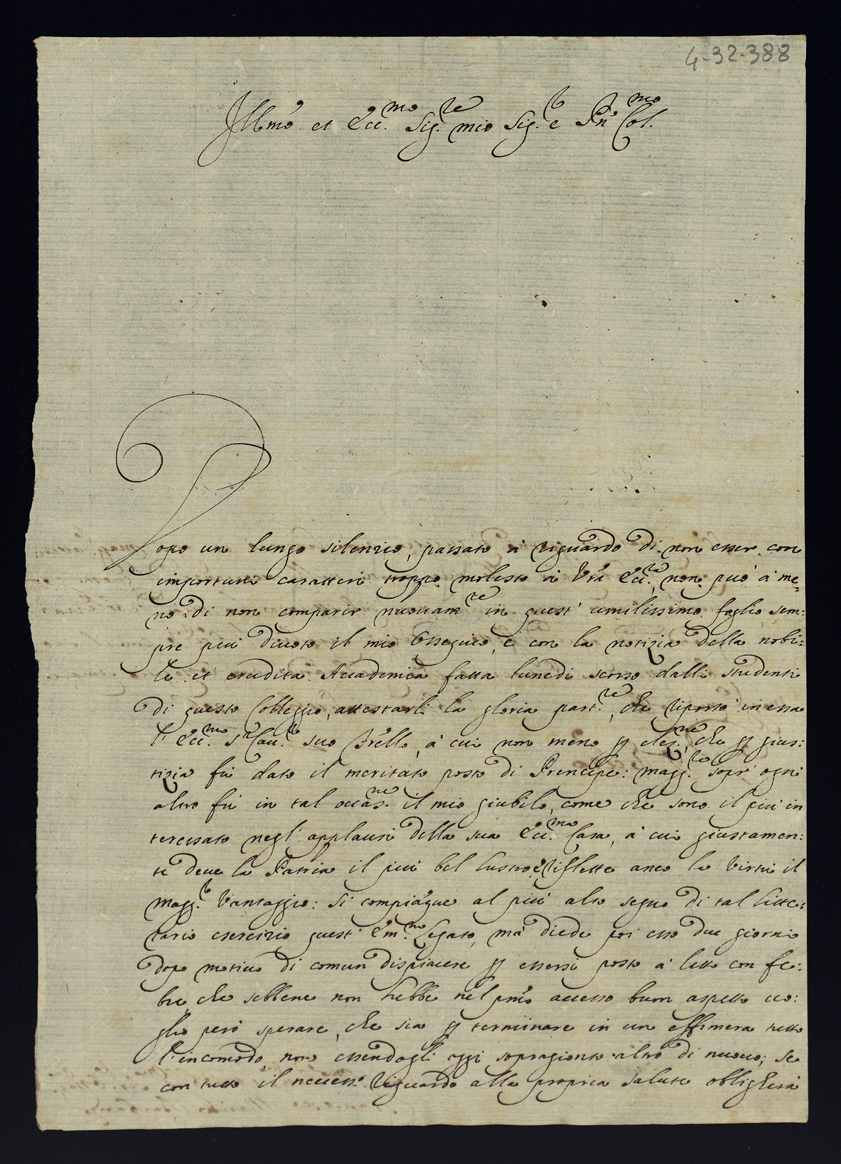 4-32-388
Ill.mo et Ecc.mo Sig.re mio Sig.r e Pn Col.mo
Dopo un lungo silenzio, passato à riguardo di non esser con
importuni caratteri troppo molesto à Vra Ecc.za, non può à me=
no di non comparir nuovam.te in quest' umilissimo foglio sem:
pre più divoto il mio ossequio, e con la notizia della nobi:
le et erudita Accademia fatta lunedì scorso dalli studenti
di questo Colleggio, attestarli la gloria part.re, che riportò in essa
l' Ecc.mo suo Frello, à cui non meno p elez.ne, che p gius:
tizia fù dato il meritato posto di Prencipe: magg.re sopr' ogni
altro fù in tal occas.ne il mio giubilo, come che sono il più in
teressato negl' applausi della sua Ecc.ma Casa, à cui giustamen:
te deve la Patria il più bel lustro, e riflette anco la Virtù il
magg.r vantaggio: si compiacque al più alto segno di tal litte:
rario esercizio quest' Em.mo Legato, mà diede poi esso due giorni
dopo motivo di comun dispiacere p essersi posto à letto con fe:
bre che sebbene non hebbe nel pmo accesso buon aspetto vo:
glio però sperare, che sia p terminare in un effimera tutto
l' incomodo, non essendogli oggi sopragionto altro di nuovo; se
con tutto il necess.o riguardo alla propria salute obligherà